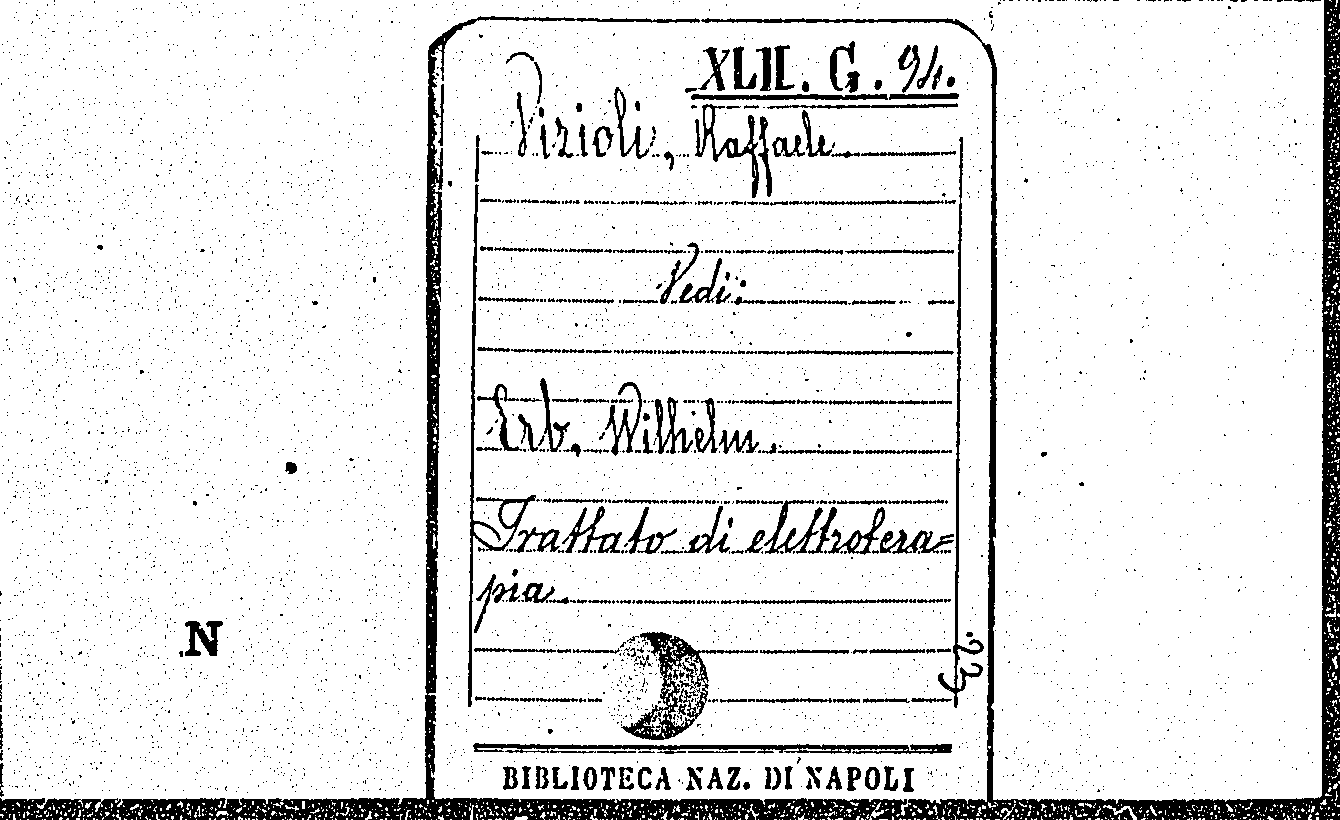 XLII. G. 94.
Vizioli, Raffaele.
Vedi:
Erb, Wilhelm.
Trattato di elettrotera=
pia.
N
BIBLIOTECA NAZ. DI NAPOLI